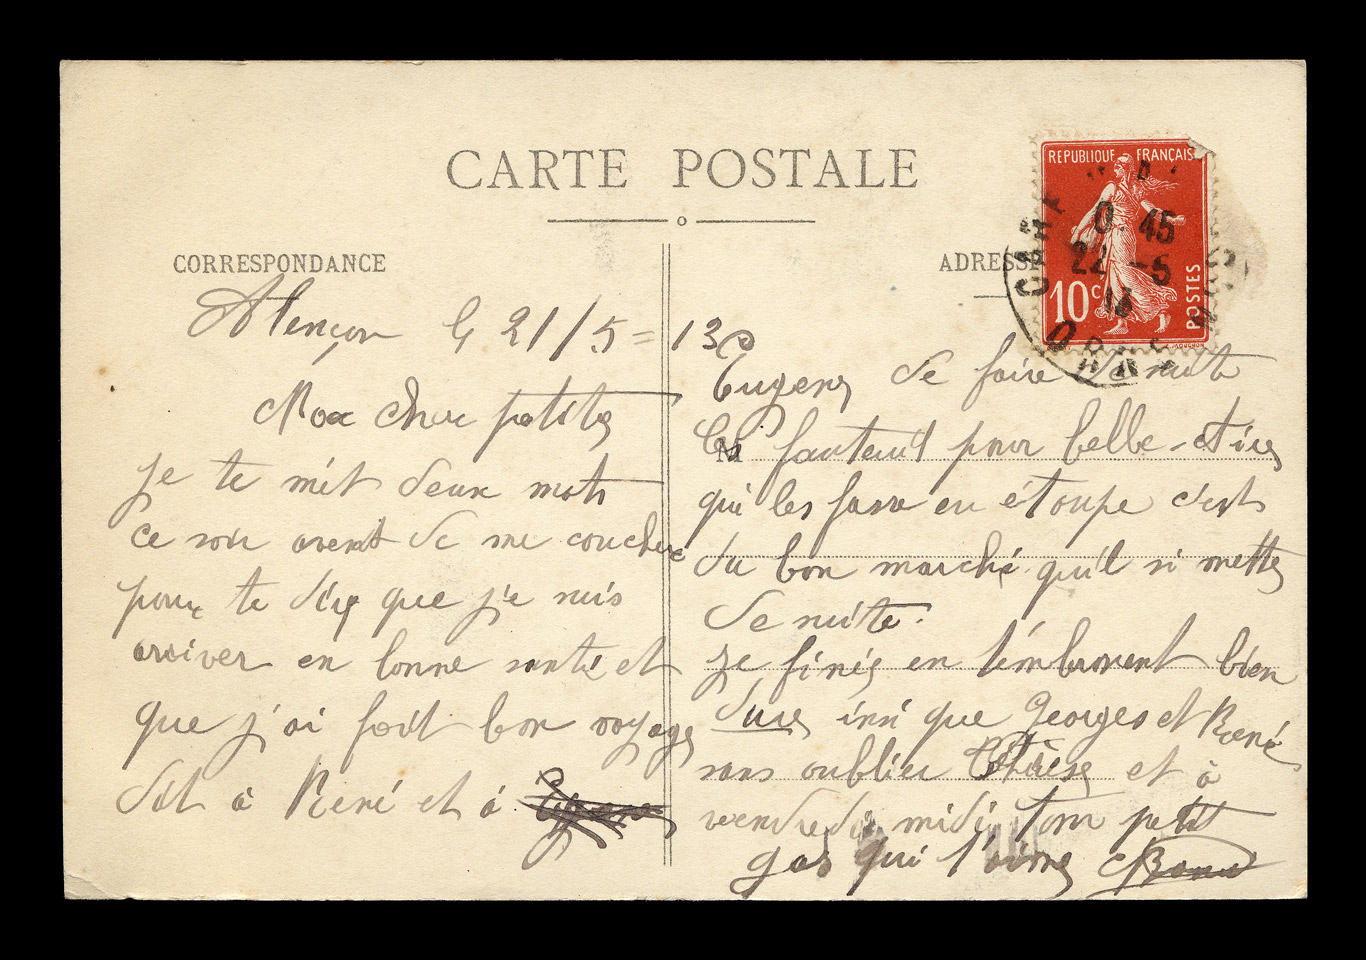 CARTE POSTALE
CORRESPONDANCE
ADRESSE
REPUBLIQUE FRANÇAIS
0 45
22 -5
13
10 c
POSTES
ORNE
Alençon le 21/5=13
Mon cher petite
je te mit deux mots
ce soir avent de me coucher
pour te dire que je suis
arriver en bonne santé et
que j'ai fait bon voyage
dit à René et à
Eugene de faire de suite
les fauteuil pour belle-
qui les fasse en étoupe c'est
du bon marché qu'il si mette
de suite.
je finis en t'embrassent bien
dure insi que Georges et René
sans oublier Thérèse et à
vendredi midi ton petit
gas qui t'aime René
M